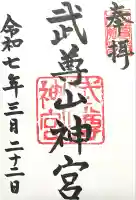 奉拝
武尊山神宮
令和七年三月二十二日